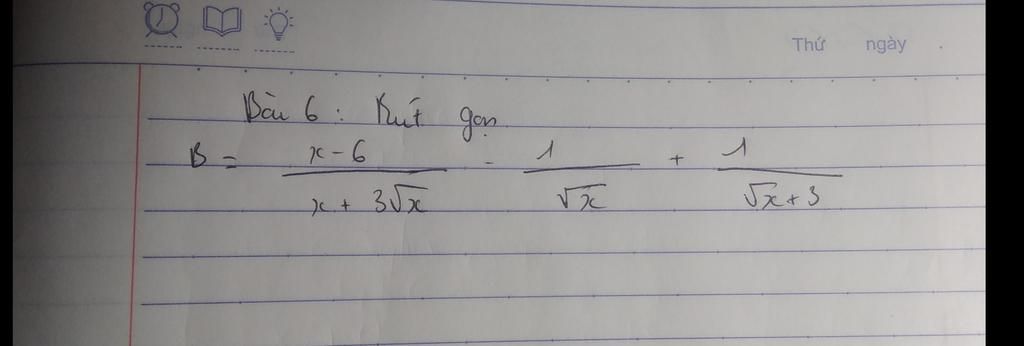 Thứ ngày .
Bài 6 : Rút gọn
B = \frac{x - 6}{x + 3\sqrt{x}} - \frac{1}{\sqrt{x}} + \frac{1}{\sqrt{x} + 3}